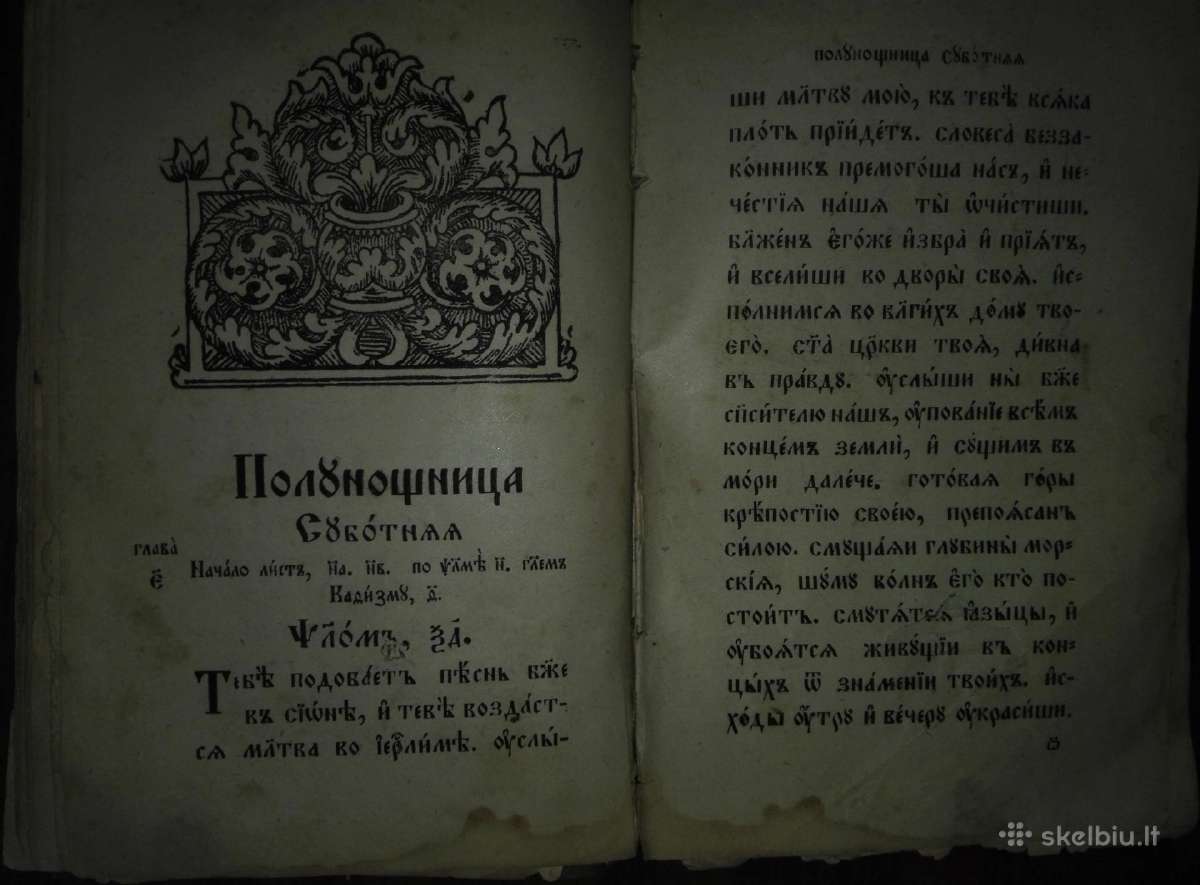 Полꙋнощница
Сꙋбо́тнѧѧ
глава̀
є҃
Нача́ло ли́стъ, н҃а. н҃в. по ѱл҃мѣ̀ н҃. гл҃емъ
Каѳи́змꙋ, д҃.
Ѱл҃о́мъ, ѯ҃д.
Тебѣ̀ подоба́етъ пѣ́снь бж҃е
въ сїѡ́нѣ, и҆ тебѣ̀ возда́ст-
сѧ мл҃тва во і҆ерⷭ҇ли́мѣ. ᲂу҆слы́-
полꙋнощница сꙋбо́тнѧѧ
ши мл҃твꙋ мою̀, къ тебѣ̀ всѧ́ка
пло́ть прїи́детъ. словеса̀ безза-
ко́нникъ премого́ша на́съ, и҆ не-
че́стїѧ на́шѧ ты̀ ѡ҆чи́стиши.
бл҃же́нъ є҆го́же и҆збра̀ и҆ прїѧ́тъ,
и҆ всели́ши во дворы̀ своѧ̀. и҆с-
по́лнимсѧ во бл҃ги́хъ до́мꙋ тво-
его̀. ст҃а̀ цр҃кви твоѧ̀, ди́вна
въ пра́вдꙋ. ᲂу҆слы́ши ны̀ бж҃е
сп҃си́телю на́шъ, ᲂу҆пова́нїе всѣ́мъ
конце́мъ землѝ, и҆ сꙋ́щимъ въ
мо́ри дале́че. гото́ваѧ го́ры
крѣ́постїю свое́ю, препоѧ́санъ
си́лою. смꙋща́ѧи глꙋбины̀ мор-
скі́ѧ, шꙋ́мꙋ во́лнъ є҆гѡ̀ кто̀ по-
стои́тъ. смꙋтѧ́тсѧ ꙗ҆зы́цы, и҆
ᲂу҆боѧ́тсѧ живꙋ́щїи въ кон-
цы́хъ ѿ зна́менїи твои́хъ. и҆с-
хо́ды ᲂу҆́трꙋ и҆ ве́черꙋ ᲂу҆краси́ши.
skelbiu.lt